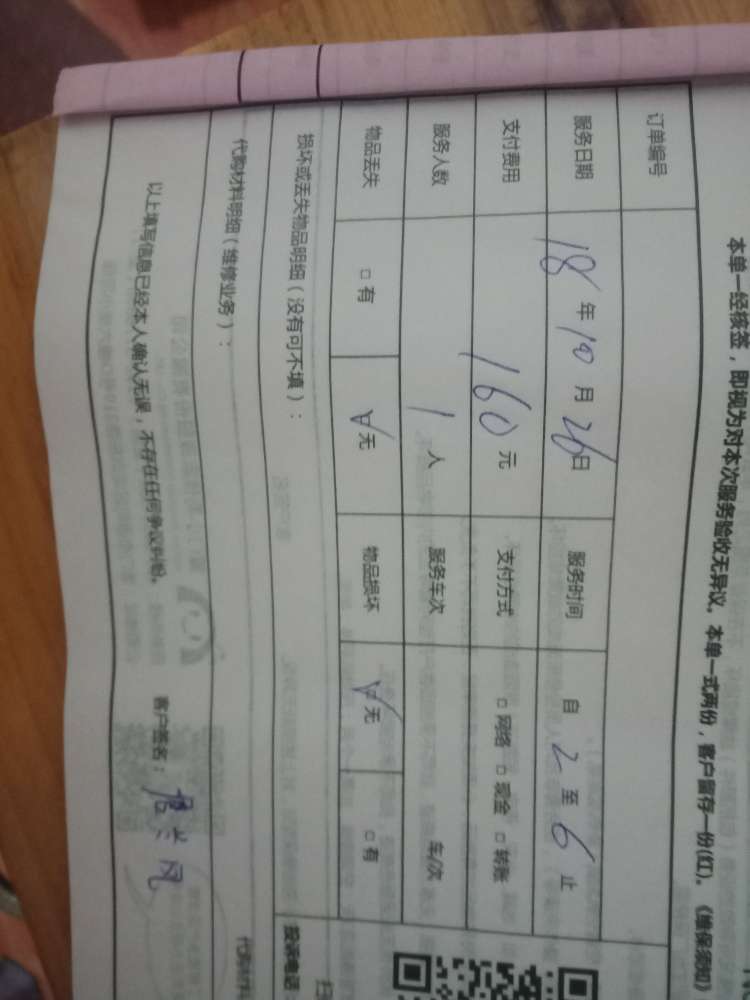 本单一经核签，即视为对本次服务验收无异议。本单一式两份，客户留存一份(红)。《维保须知》
订单编号
服务日期 18 年 10 月 26 日 服务时间 自 2 至 6 止
支付费用 160 元 支付方式 □ 网络 □ 现金 □ 转账
服务人数 1 人 服务车次 车/次
物品丢失 □ 有 ☑ 无 物品损坏 ☑ 无 □ 有
损坏或丢失物品明细（没有可不填）：
代购材料明细（维修业务）：
代购材料
投诉电话
以上填写信息已经本人确认无误，不存在任何争议纠纷。 客户签名：